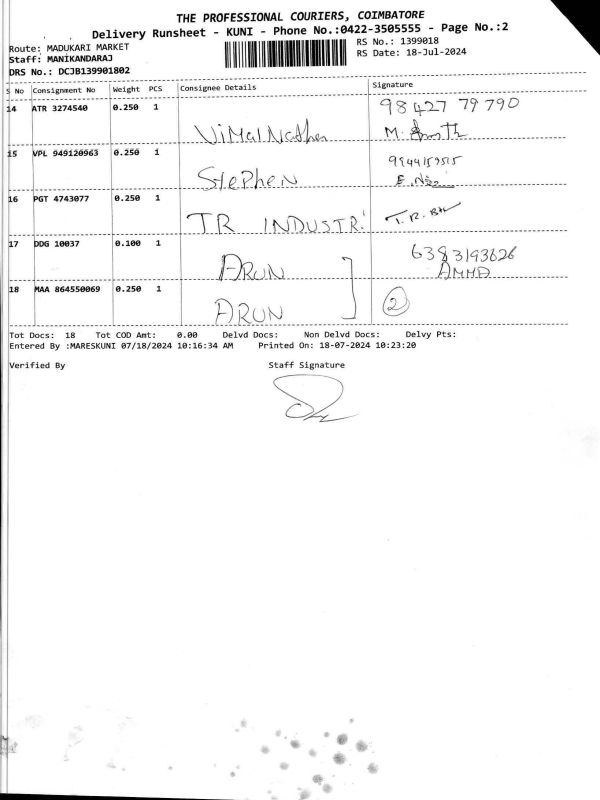 THE PROFESSIONAL COURIERS, COIMBATORE
Delivery Runsheet - KUNI - Phone No.:0422-3505555 - Page No.:2
Route: MADUKARI MARKET
RS No.: 1399018
Staff: MANIKANDARAJ
RS Date: 18-Jul-2024
DRS No.: DCJB139901802
S No Consignment No Weight PCS Consignee Details Signature
14 ATR 3274540 0.250 1 98427 79790
Vimal Nathan M.
15 VPL 949120963 0.250 1
Stephen
16 PGT 4743077 0.250 1
TR INDUSTRI T.R.
17 DDG 10037 0.100 1 6383193626
ARUN AMMA
18 MAA 864550069 0.250 1 2
ARUN
Tot Docs: 18 Tot COD Amt: 0.00 Delvd Docs: Non Delvd Docs: Delvy Pts:
Entered By :MARESKUNI 07/18/2024 10:16:34 AM Printed On: 18-07-2024 10:23:20
Verified By Staff Signature